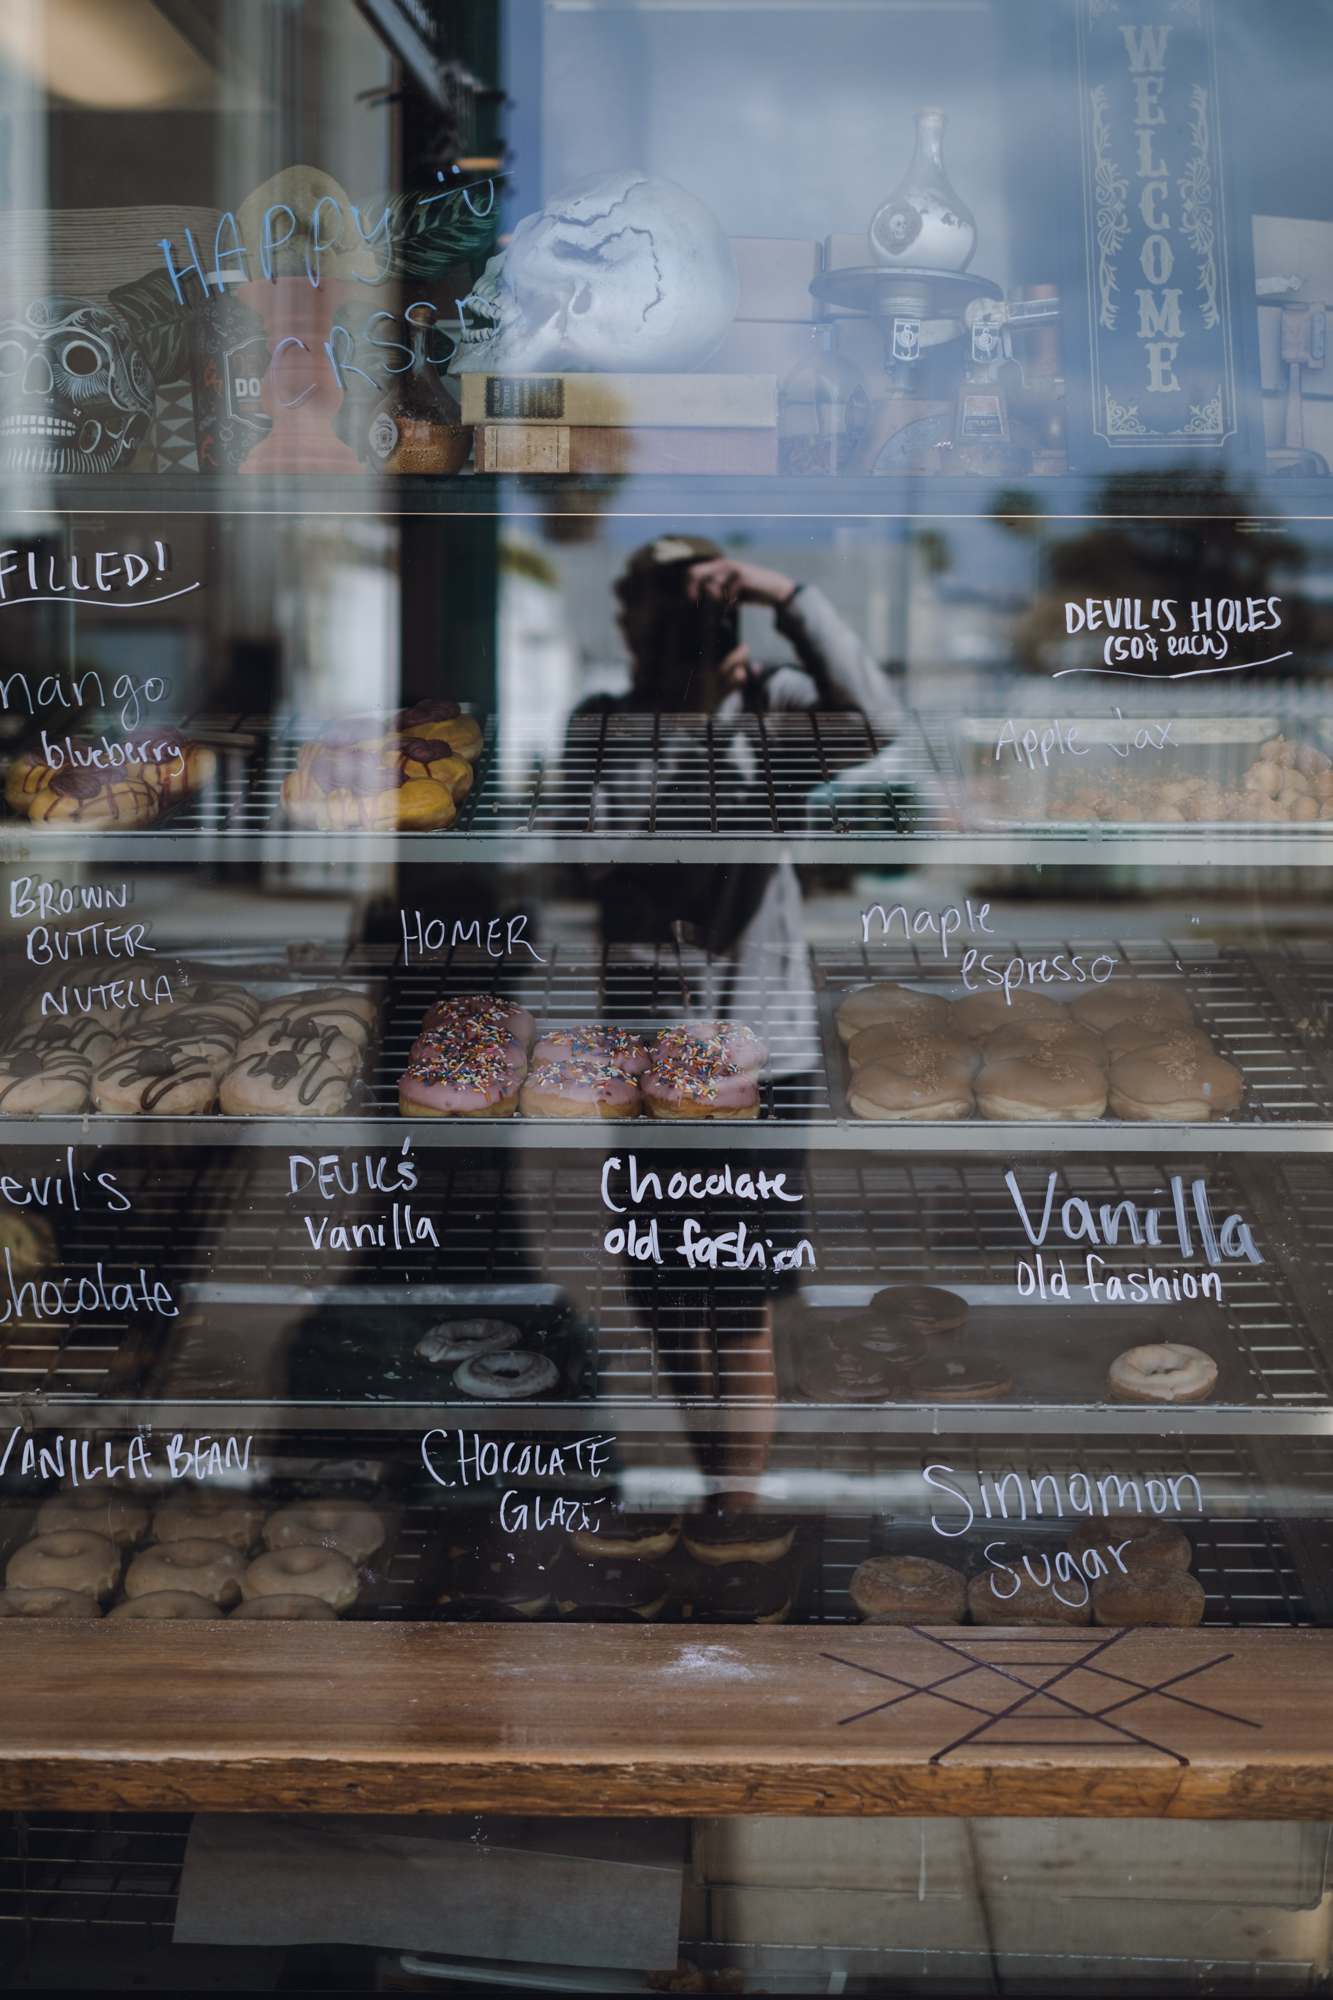 WELCOME
HAPPY
DO
FILLED!
mango
blueberry
DEVIL'S HOLES
(50¢ each)
Apple Jax
BROWN
BUTTER
NUTELLA
HOMER
maple
espresso
evil's
Chocolate
DEVIL'S
Vanilla
Chocolate
old fashion
Vanilla
Old fashion
VANILLA BEAN
CHOCOLATE
GLAZE
Sinnamon
Sugar